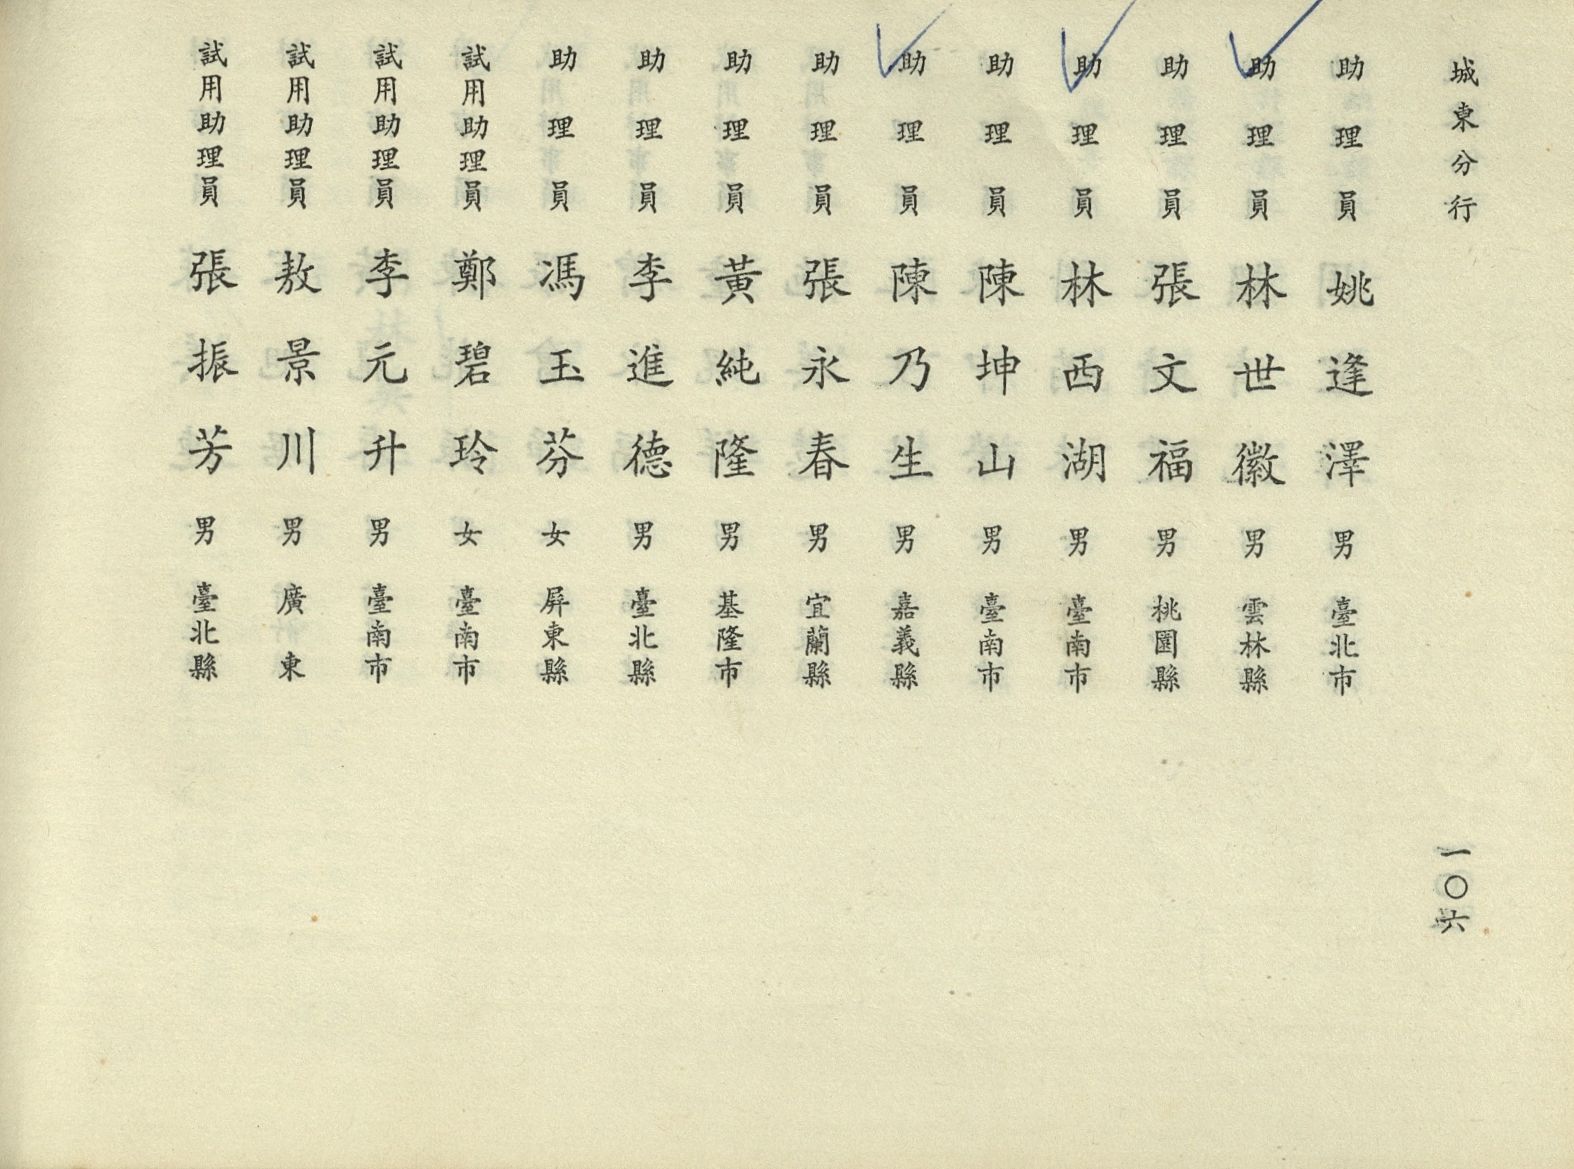 城東分行
助理員 姚逢澤 男 臺北市
助理員 林世徽 男 雲林縣
助理員 張文福 男 桃園縣
助理員 林西湖 男 臺南市
助理員 陳坤山 男 臺南市
助理員 陳乃生 男 嘉義縣
助理員 張永春 男 宜蘭縣
助理員 黃純隆 男 基隆市
助理員 李進德 男 臺北縣
助理員 馮玉芬 女 屏東縣
試用助理員 鄭碧玲 女 臺南市
試用助理員 李元升 男 臺南市
試用助理員 敖景川 男 廣東
試用助理員 張振芳 男 臺北縣
一〇六